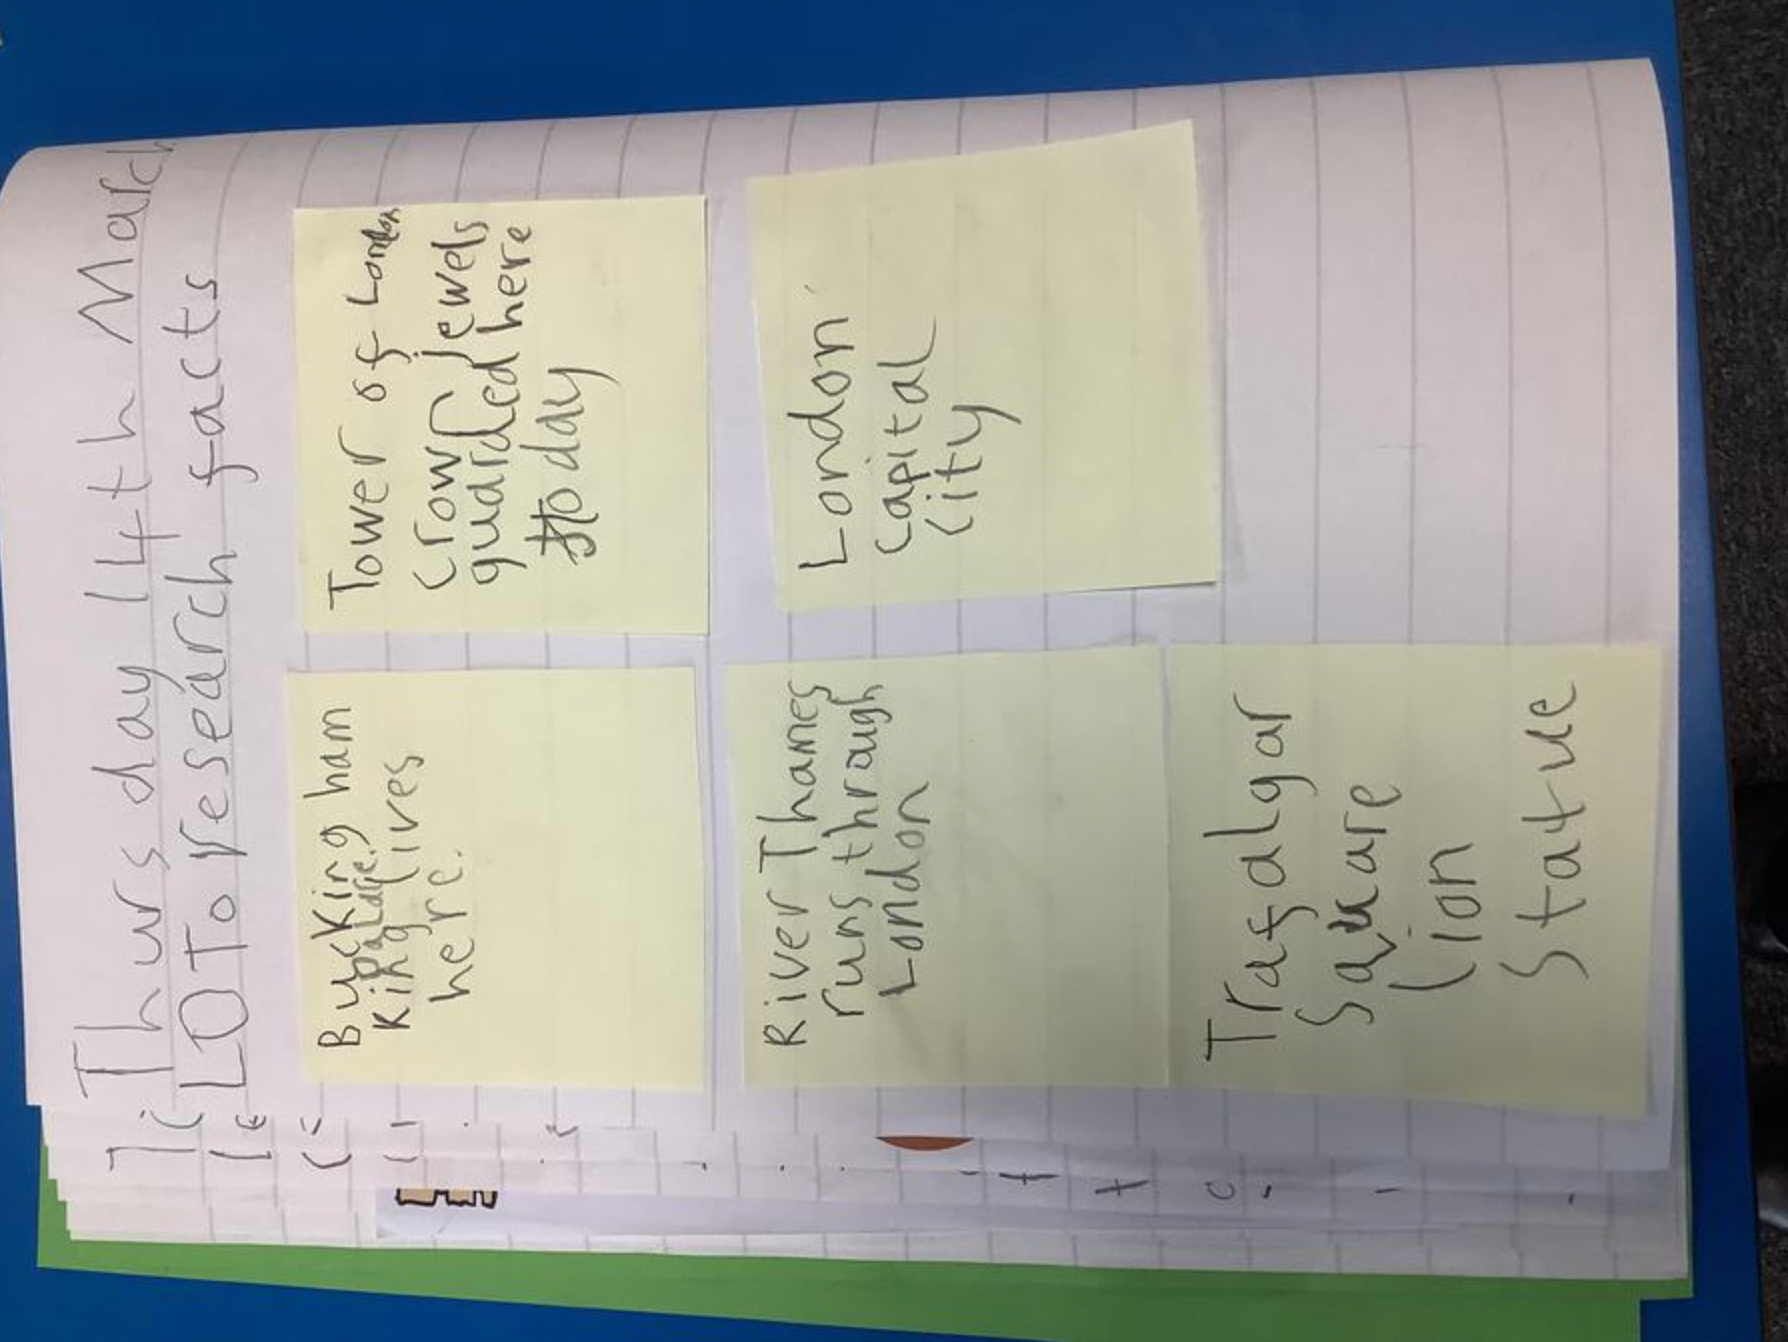 Thursday 14th March
LO To research facts
Bucking ham
palace.
King lives
here.
Tower of London
Crown Jewels
guarded here
to day
River Thames
runs through
London
London
Capital
City
Trafalgar
Square
lion
Statue